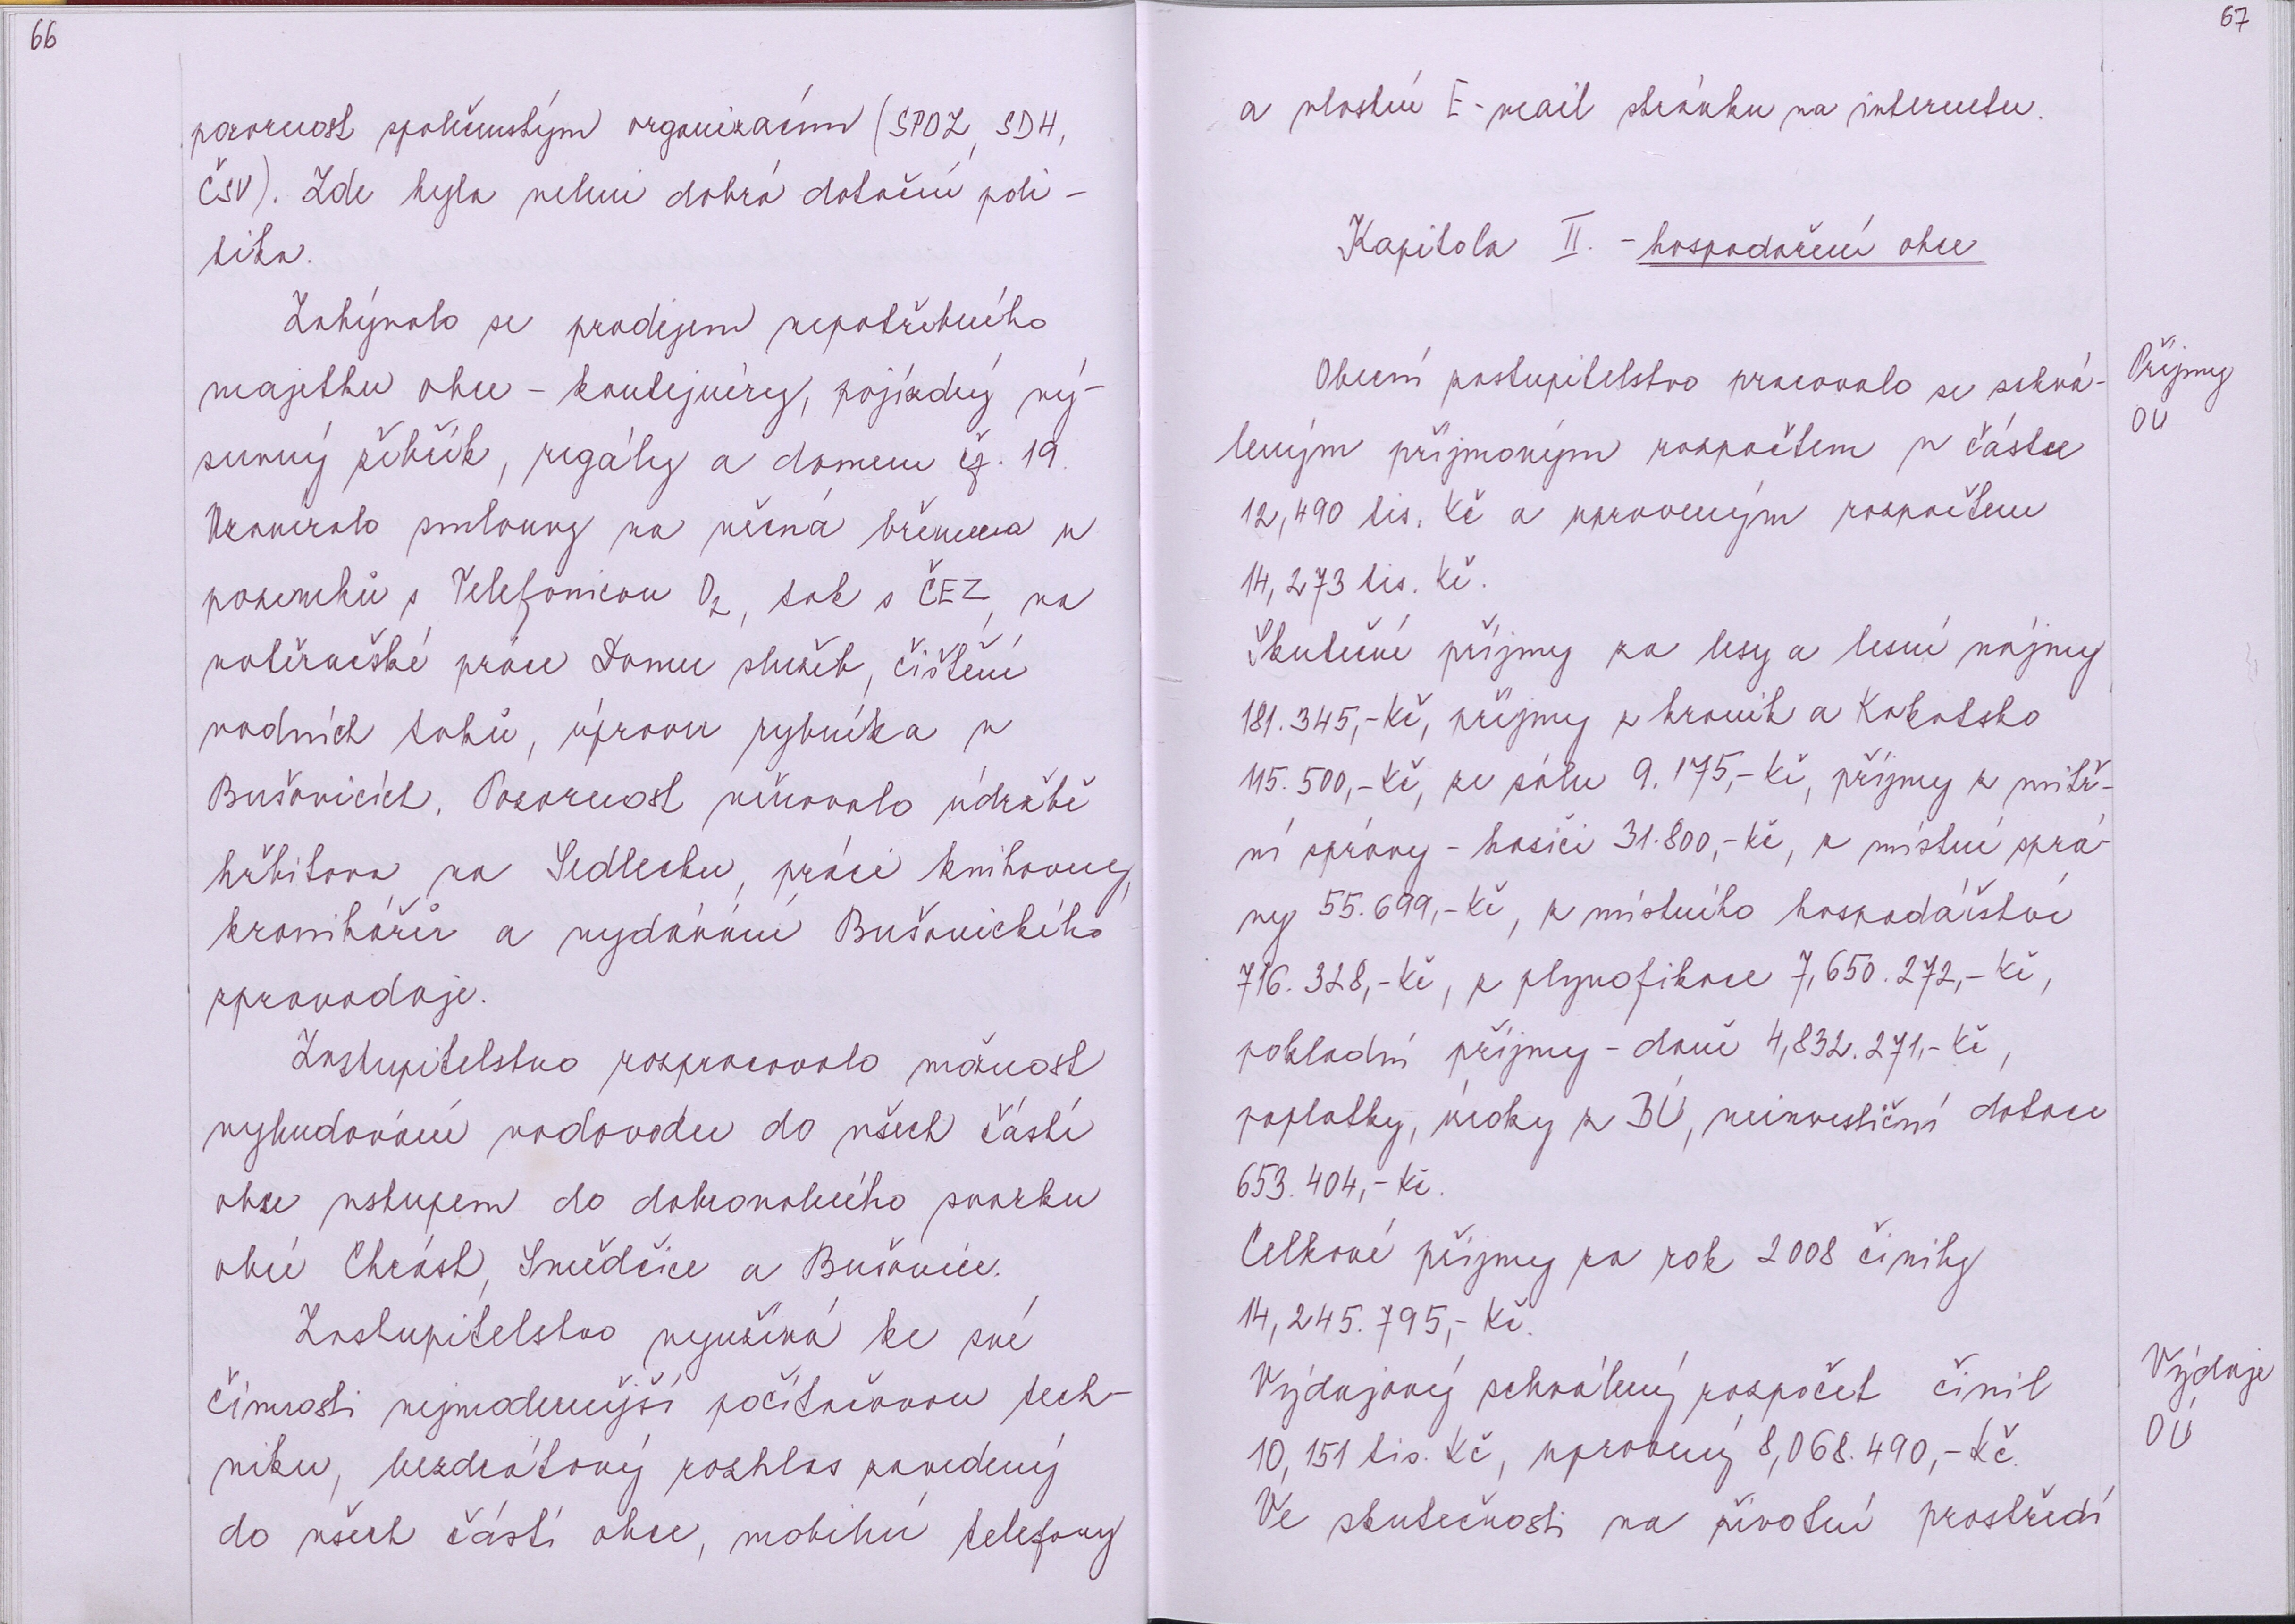 66
pozornost společenským organizacím (SPOZ, SDH,
ČSV). Zde byla velmi dobrá dotační poli-
tika.
Zabývalo se prodejem nepotřebného
majetku obce - kontejnéry, pojízdný vý-
suvný žebřík, regály a domem čp. 19.
Uzavíralo smlouvy na věcná břemena u
pozemků s Telefonicou O2, tak s ČEZ, na
natěračské práce Domu služeb, čištění
vodních toků, úpravu rybníka v
Bušovicích. Pozornost věnovalo údržbě
hřbitova na Sedlecku, práci knihovny,
kronikářů a vydávání Bušovického
zpravodaje.
Zastupitelstvo rozpracovalo možnost
vybudování vodovodu do všech částí
obce vstupem do dobrovolného svazku
obcí Chrást, Smědčice a Bušovice.
Zastupitelstvo využívá ke své
činnosti nejmodernější počítačovou tech-
niku, bezdrátový rozhlas zavedený
do všech částí obce, mobilní telefony
67
a vlastní E-mail stránku na internetu.
Kapitola II. - hospodaření obce
Obecní zastupitelstvo pracovalo se schvá-
leným příjmovým rozpočtem v částce
12,490 tis. Kč a upraveným rozpočtem
14,273 tis. Kč.
Skutečné příjmy za lesy a lesní nájmy
181.345,-Kč, příjmy z hronik a Kokotsko
115.500,-Kč, ze sálu 9.175,-Kč, příjmy z vnitř-
ní správy - hasiči 31.800,-Kč, z místní sprá-
vy 55.699,-Kč, z místního hospodářství
716.328,-Kč, z plynofikace 7,650.272,-Kč,
pokladní příjmy - daně 4,832.271,-Kč,
poplatky, úroky z BÚ, neinvestiční dotace
653.404,-Kč.
Celkové příjmy za rok 2008 činily
14,245.795,-Kč.
Výdajový schválený rozpočet činil
10,151 tis. Kč, upravený 8,068.490,-Kč.
Ve skutečnosti na životní prostředí
Příjmy
OÚ
Výdaje
OÚ